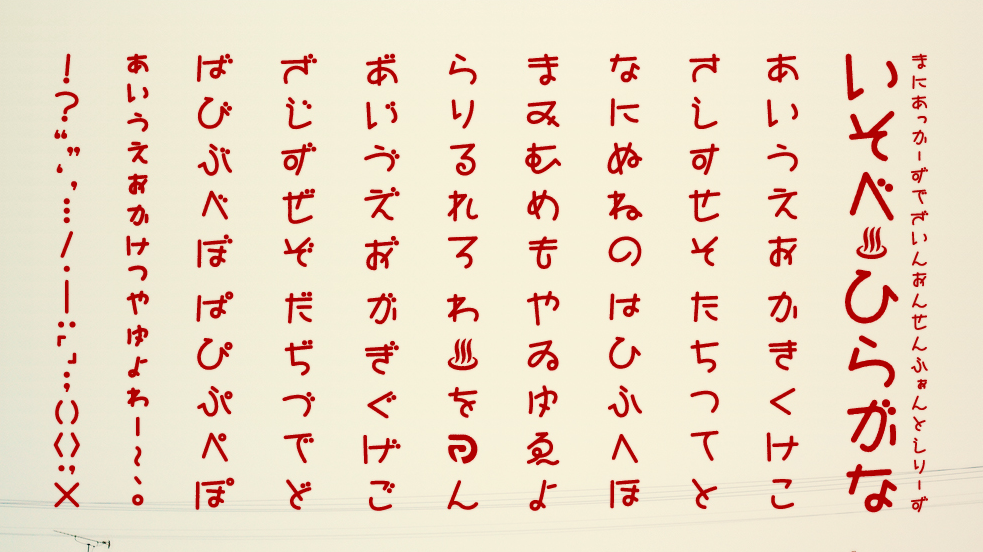 まにあっかーずでざいんおんせんふぉんとしりーず
いそべ♨ひらがな
あいうえおかきくけこ
さしすせそたちつてと
なにぬねのはひふへほ
まみむめもやゐゆゑよ
らりるれろわ♨をん
あ゙い゙ゔえ゙お゙がぎぐげご
ざじずぜぞだぢづでど
ばびぶべぼぱぴぷぺぽ
ぁぃぅぇぉゕゖっゃゅょゎー〜、。
！？“”‘’…／・｜：「」；（）〈〉×